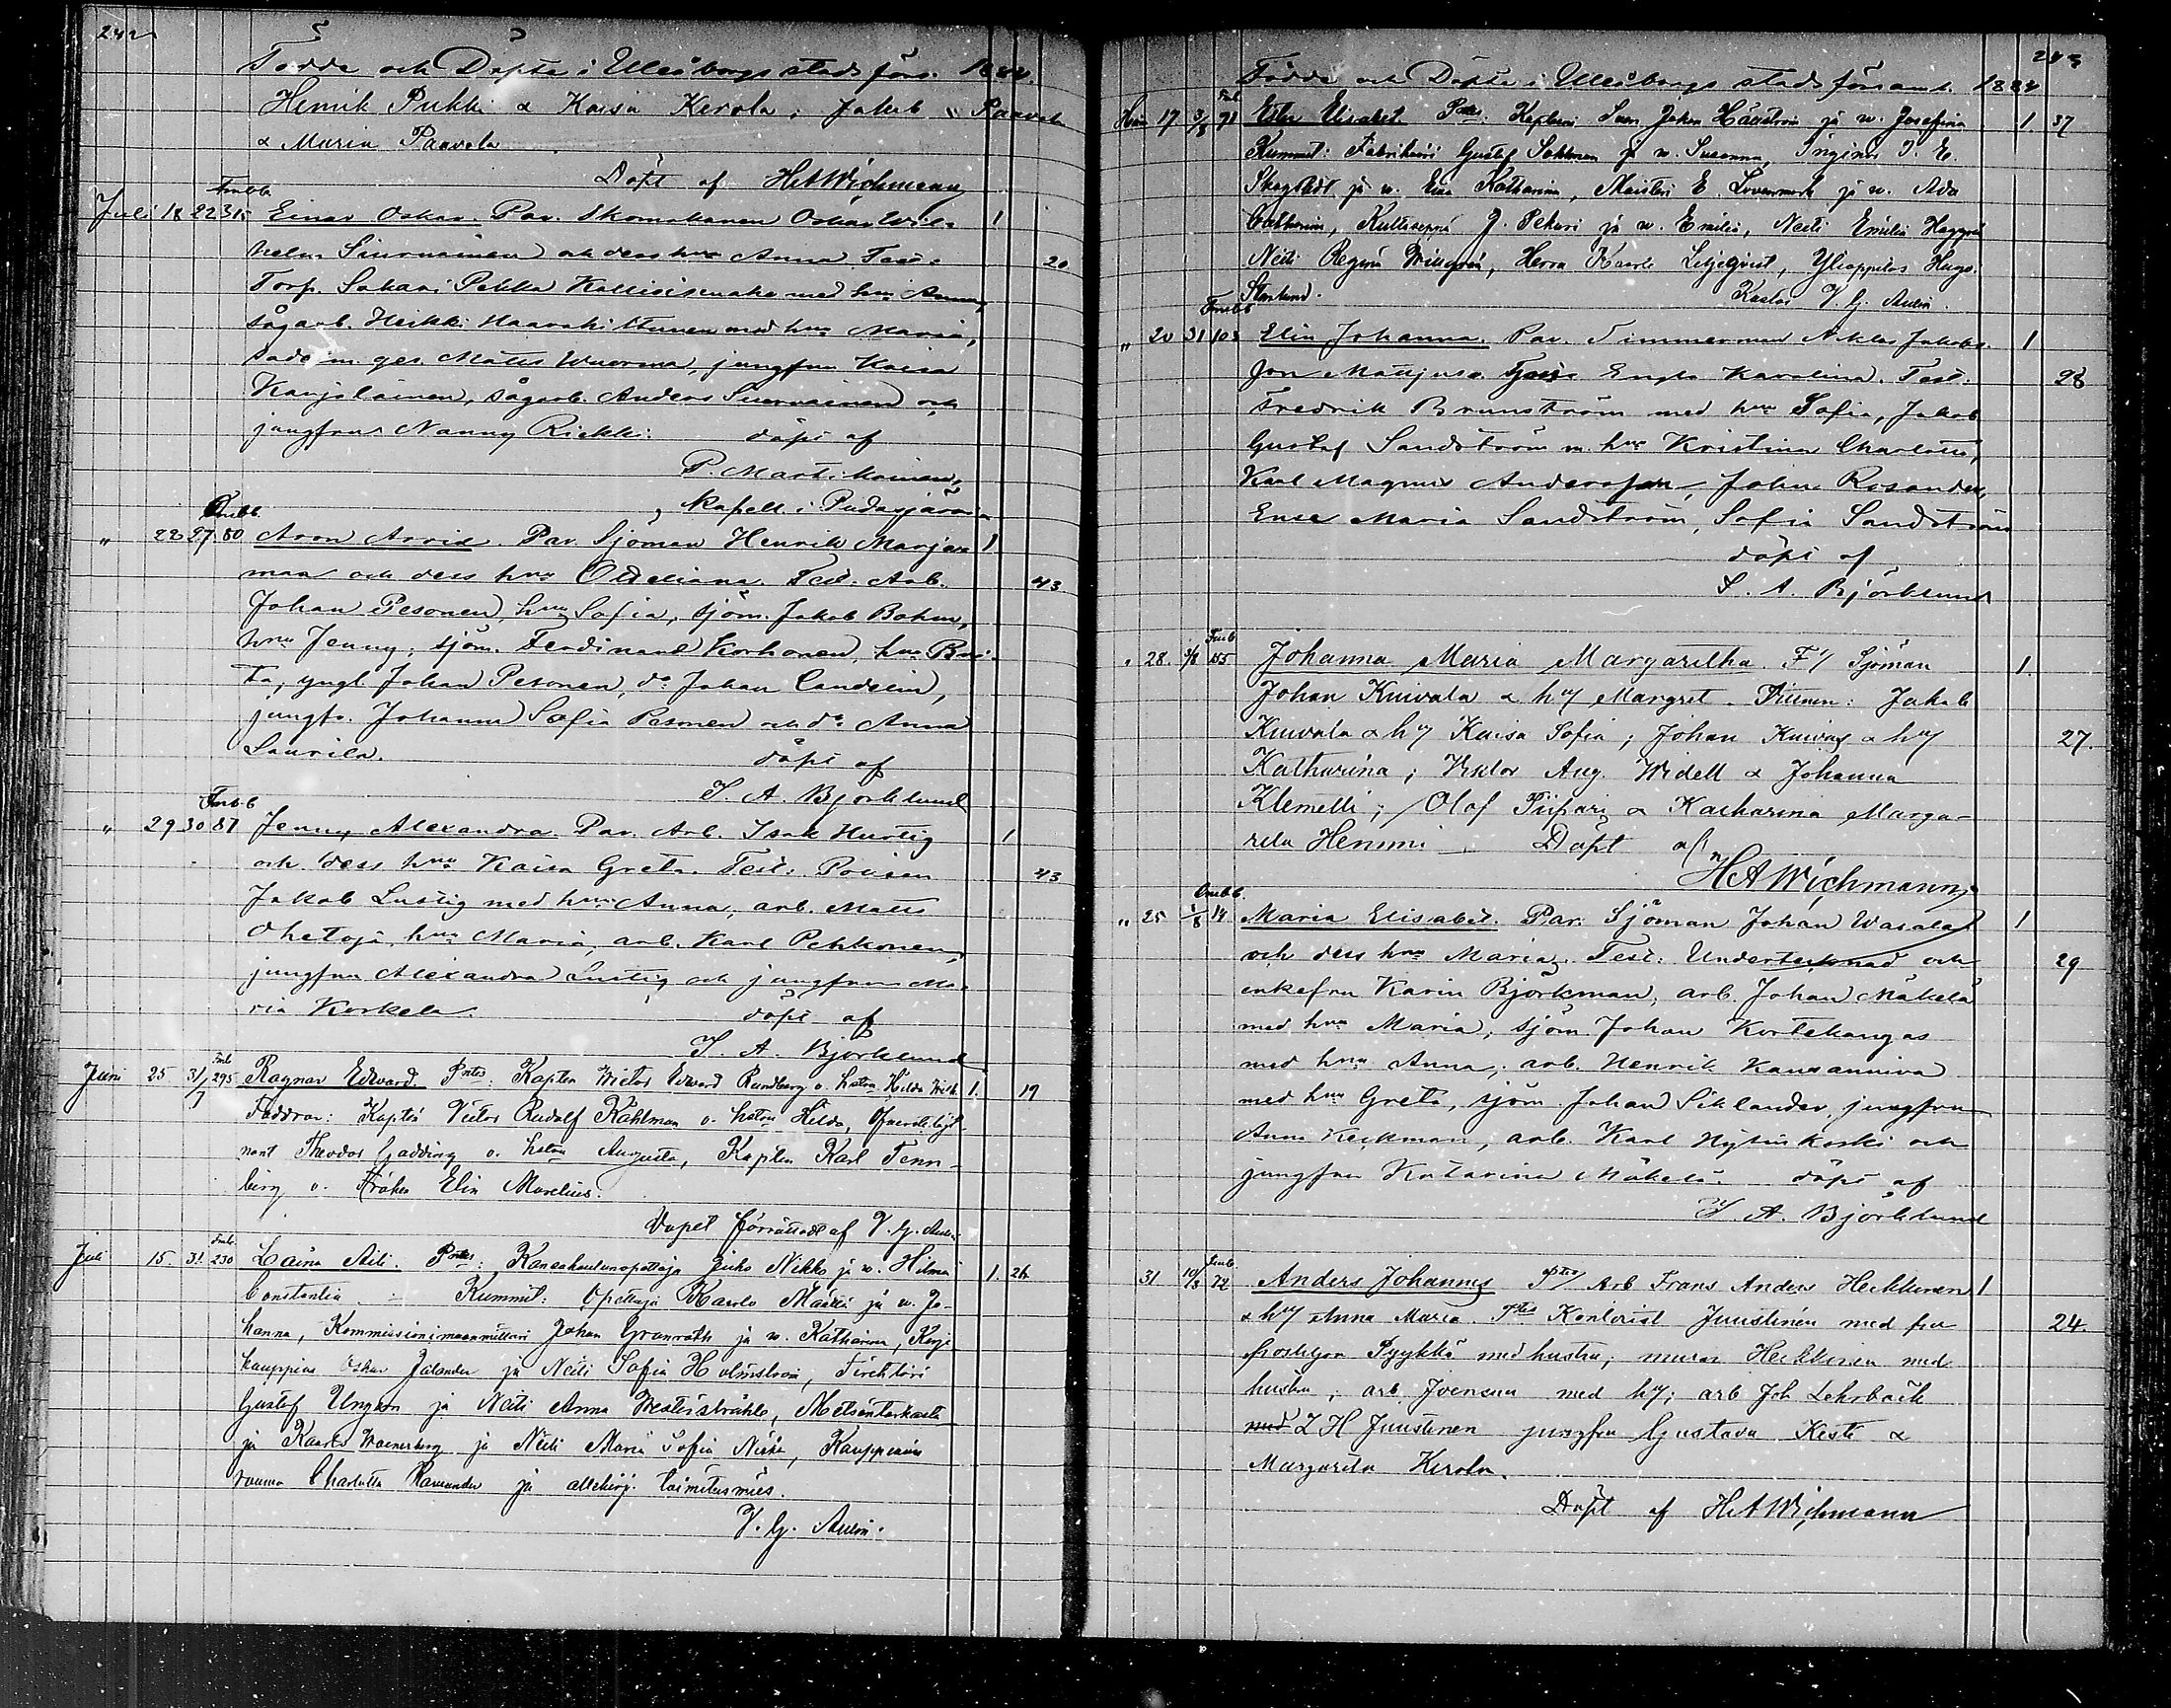 242
Födde och Döpte i Uleåborgs stads förs. 1884.
Henrik Pukki & Kaisa Kerola; Jakob Paavola
& Maria Paavola
Döpt af HAWichmann
Juli 18 22 315 Einar Oskar. Par. Skomakaren Oskar Wil- 1
helm Siurnainen och dess hu Anna. Test: 20
Torp. Sakari Pekka med hu Anna,
sågarb. Heikki med hu Maria,
ges. Matts Wuorma, jungfru Kaisa
Karjalainen, sågarb. Anders Siurnainen och
jungfrun Nanny Riekki. döpt af
P. Martikainen,
Kapell. i Pudasjärvi
" 22 27 80 Aron Arvid. Par. Sjöman Henrik Marja- 1
maa och dess hu Test. Arb. 43
Johan Pesonen, hu Sofia, sjöm. Jakob Bohm,
hru Jenny; sjöm. Ferdinand Korhonen, hu Bri-
ta, yngl. Johan Pesonen, do Johan Candelin,
jungfr. Johanna Sofia Pesonen och do Anna
Laurila. döpt af
S. A. Björklund
" 29 30 87 Jenny Alexandra. Par. Arb. Isak Hurtig 1
och dess hru Kaisa Greta. Test: Polisen 43
Jakob Lustig med hru Anna, arb. Matts
Ohetoja, hru Maria, arb. Karl Pekkonen,
jungfrun Alexandra Lustig och jungfrun Ma-
ria Korkela. döpt af
S. A. Björklund
Juni 25 31/7 295 Ragnar Edward. Kapten Wictor Edward Rundberg o. hstru Hilda 1. 19
Faddrar: Kaptén Victor Rudolf Kahlman o. hstru Hilda, Öfverstlöjt-
nant Theodor Gadding o. hstru Augusta, Kapten Karl Tenn-
berg o. Fröken Elin Marelius.
Dopet förrättadt af V. G. Aulin.
Juli 15. 31. 230 Laina Aili. Kansakoulunopettaja Juho Nikko ja w. Hilma 1. 26
Constantia. Kummit: Opettaja Kaarlo Määttä ja w. Jo-
hanna, Johan Granroth ja w. Katharina, Kirja-
kauppias Oskar Jalander ja Neiti Sofia Holmström, Tirehtöri
Gustaf Ungern ja Neiti Anna Westerstråhle,
ja Kaarlo ja Neiti Maria Sofia
rouva Charlotta ja allekirj. toimitusmies.
V. G. Aulin.
243
Födde och Döpte i Uleåborgs stads församl. 1884
17 3/8 71 Ester Elisabet. Kapteeni Sven Johan Häggström ja w. Josefina 1. 37
Kummit: Fabrikööri Gustaf Sohlman ja w. Susanna, Insinör J. E.
ja w. Eva Katharina, Maisteri E. ja w. Ada
Catharina, Kultaseppä J. Pekuri ja w. Emilia, Neiti Emilia Heggroth
Neiti Regina, Herra Kaarle Liljeqvist, Ylioppilas Hugo
Starlund. Kastoi V. G. Aulin.
" 20 31 103 Elin Johanna. Par. Timmerman Niklas Jakobs- 1
son Engla Karolina. Test: 28
Fredrik Brunström med hru Sofia, Jakob
Gustaf Sandström m. hru Kristina Charlotta,
Karl Magnus Andersson, Johan Rosander,
Eva Maria Sandström, Sofia Sandström
döpt af
S. A. Björklund
" 28. 3/8 155 Johanna Maria Margaretha. Sjöman 1.
Johan Kuivala & hu Margret. Jakob
Kuivala & hu Kaisa Sofia; Johan Kuivas & hu 27.
Katharina; Viktor Aug. Widell & Johanna
Klemetti; Olof Piipari & Katharina Marga-
reta Hemmi. Döpt af
HAWichmann
" 25 1/8 14 Maria Elisabet. Par: Sjöman Johan Wasala 1
och dess hru Maria. Test: Undertecknad och 29
enkefru Karin Björkman, arb. Johan Mäkelä
med hru Maria, sjöm Johan Kortekangas
med hru Anna, arb. Henrik Kansanniva
med hru Greta, sjöm. Johan Siklander, jungfrun
Anna Keckman, arb. Karl Hytinkoski och
jungfrun Katarina Mäkelä. döpt af
S. A. Björklund
31 10/8 72 Anders Johannes Arb Frans Anders Heikkinen 1
& hu Anna Maria. Kontorist Juustinen med fru 24.
Pyykkö med hustru; murar Heikkinen med
hustru; arb. Joensuu med hu; arb Joh Lehrbäck
med Z H Juustinen jungfru Gustava Kesti &
Margareta Kerola.
Döpt af HAWichmann